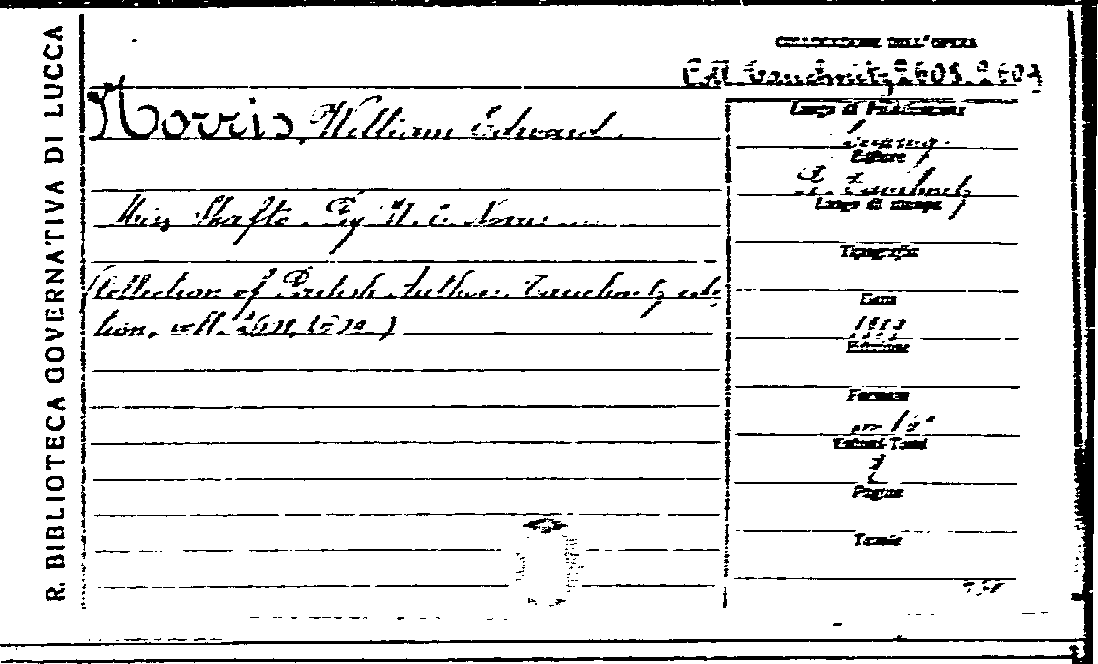 R. BIBLIOTECA GOVERNATIVA DI LUCCA
COLLOCAZIONE DELL'OPERA
Ed. Tauchnitz, 2603. 2604
Norris, William Edward.
Miss Shafto. By W. E. Norris
(Collection of British Authors. Tauchnitz edi-
tion. voll.
Luogo di Pubblicazione
Editore
Tauchnitz
Luogo di stampa
Tipografia
Data
Edizione
Formato
in-16°
Volumi-Tomi
2
Pagine
Tavole